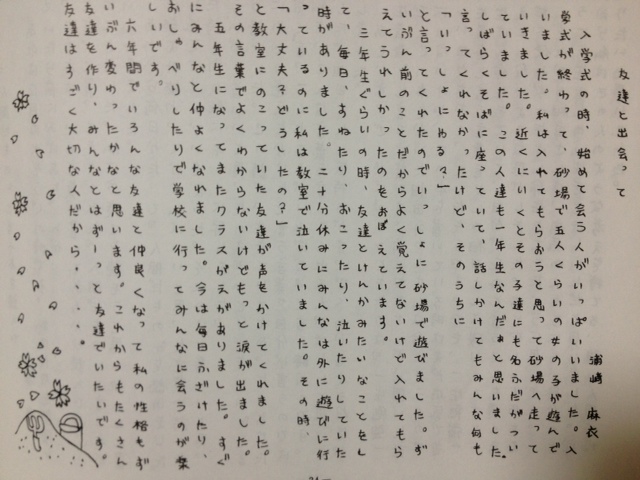 友達と出会って
浦崎 麻衣
入学式の時、始めて会う人がいっぱいいました。入
学式が終わって、砂場で五人くらいの女の子が遊んで
いました。私は入れてもらおうと思って砂場へ走って
いきました。近くにいくとその子達にも名ふだがつい
ていました。この人達も一年生なんだぁと思いました。
しばらくそばに座っていて、話しかけてもみんな何も
言ってくれなかったけど、そのうちに
「いっしょにやる?」
と言ってくれたのでいっしょに砂場で遊びました。ず
いぶん前のことだからよく覚えてないけど入れてもら
えてうれしかったのをおぼえています。
三年生ぐらいの時、友達とけんかみたいなことをし
て、毎日、すねたり、おこったり、泣いたりしていた
時がありました。二十分休みにみんなは外に遊びに行
っているのに私は教室で泣いていました。その時、
「大丈夫?どうしたの?」
と教室にのこっていた友達が声をかけてくれました。
その言葉でよくわからないけどもっと涙が出ました。
五年生になってまたクラスがえがありました。すぐ
にみんなと仲よくなれました。今は毎日ふざけたり、
おしゃべりしたりで学校に行ってみんなに会うのが楽
しいです。
六年間でいろんな友達と仲良くなって私の性格もず
いぶん変わったかなと思います。これからもたくさん
友達を作り、みんなとはずーっと友達でいたいです。
友達はすごく大切な人だから・・・・。